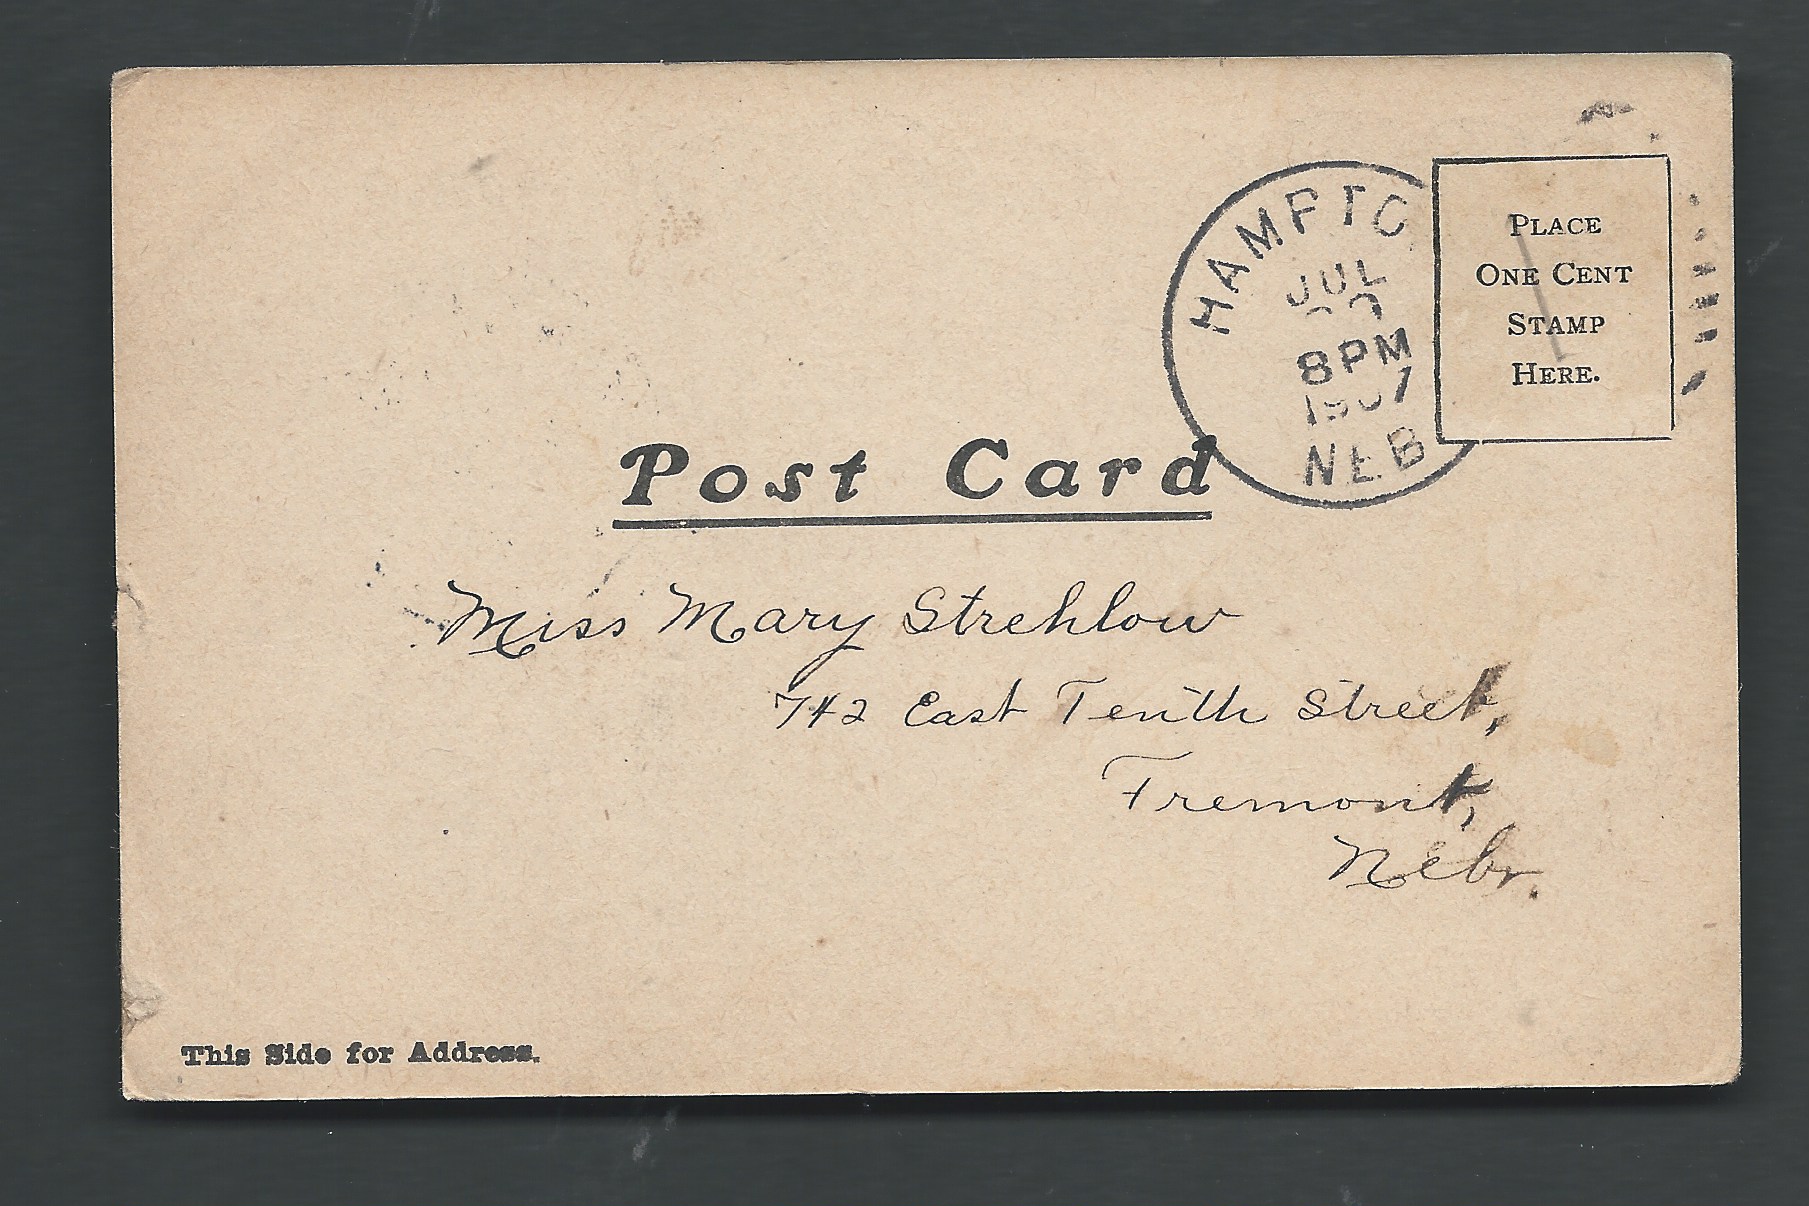 HAMPTO
JUL
8PM
1907
NEB
PLACE
ONE CENT
STAMP
HERE.
Post Card
Miss Mary Strehlow
742 East Tenth Street,
Fremont,
Nebr.
This Side for Address.